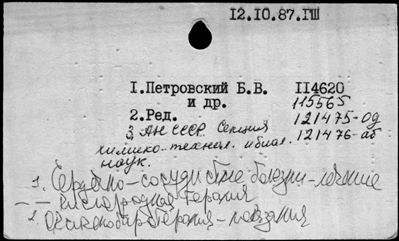 12.10.87.ГШ
1.Петровский Б.В. 114620
и др. 115565
2.Ред. 121475-од
3. АН СССР. Секция 121476-аб
химико-технол. и биол.
наук.
1. Сердечно-сосудистые болезни-лечение
-- кислородная терапия
2. Оксигенобаротерапия-показания